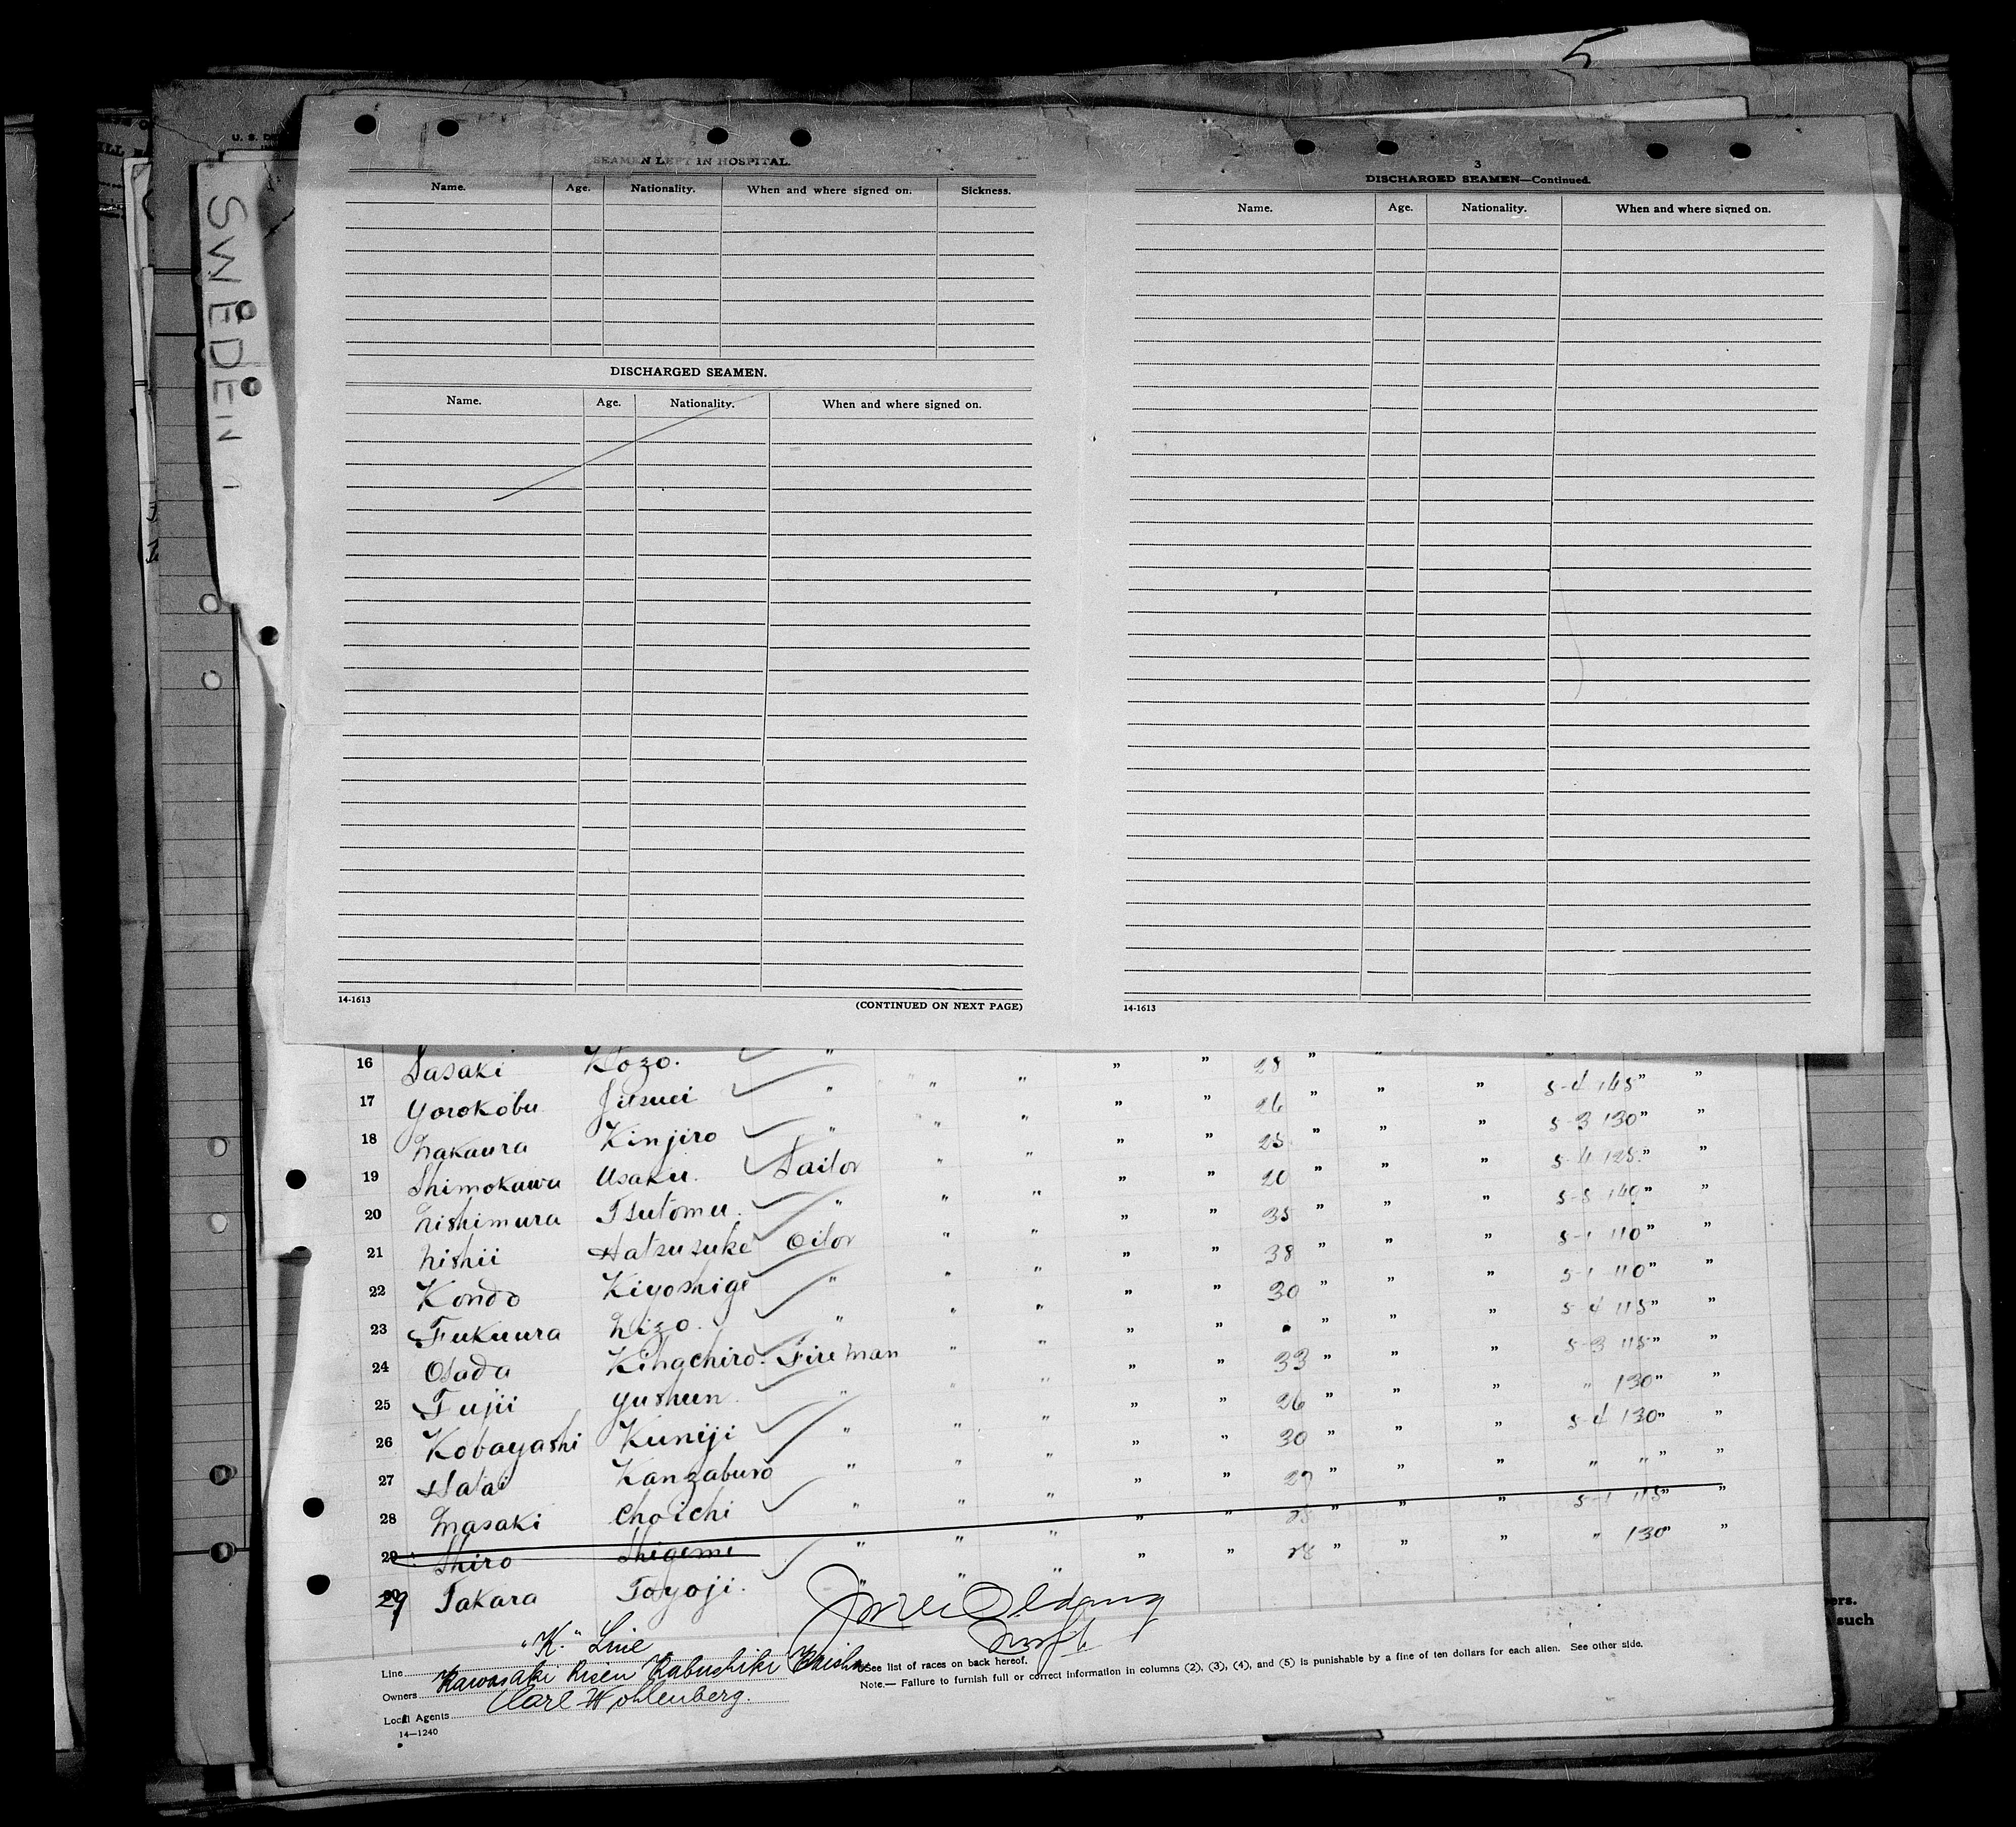 5
U. S. DE
SWEDEN
SEAMEN LEFT IN HOSPITAL.
Name. Age. Nationality. When and where signed on. Sickness.
DISCHARGED SEAMEN.
Name. Age. Nationality. When and where signed on.
14-1613 (CONTINUED ON NEXT PAGE)
3
DISCHARGED SEAMEN—Continued.
Name. Age. Nationality. When and where signed on.
14-1613
16 Sasaki Kozo. " " " " " 28 " " " 5-4 145 " "
17 Yorokobu " " " " " 26 " " " 5-3 130 " "
18 Nakaura Kinjiro " " " " " 25 " " " 5-4 125 " "
19 Shimokawa Usaku. Sailor " " " " 20 " " " 5-5 140 " "
20 Nishimura Tsutomu. " " " " " 35 " " " 5-1 110 " "
21 Nishii Hatsusuke Oilor " " " " 38 " " " 5-1 110 " "
22 Kondo Kiyoshige " " " " " 30 " " " 5-4 115 " "
23 Fukuura Nizo. " " " " " " " " 5-3 115 " "
24 Osada Kihachiro. Fireman " " " " 33 " " " " 130 " "
25 Fujii Yushun " " " " " 26 " " " 5-4 130 " "
26 Kobayashi Kuniji " " " " " 30 " " " " " " "
27 Hatai Kanzaburo " " " " " 27 " " " 5-1 115 " "
28 Masaki Choichi " " " " " 28 " " " " 130 " "
29 Shiro Shigemi " " " " " 28 " " "
29 Takara Toyoji. " " "
Line "K." Line
Owners Kawasaki Kisen Kabushiki Kaisha
Local Agents Carl Wohlenberg.
14—1240
See list of races on back hereof.
Note.— Failure to furnish full or correct information in columns (2), (3), (4), and (5) is punishable by a fine of ten dollars for each alien. See other side.
ers.
such